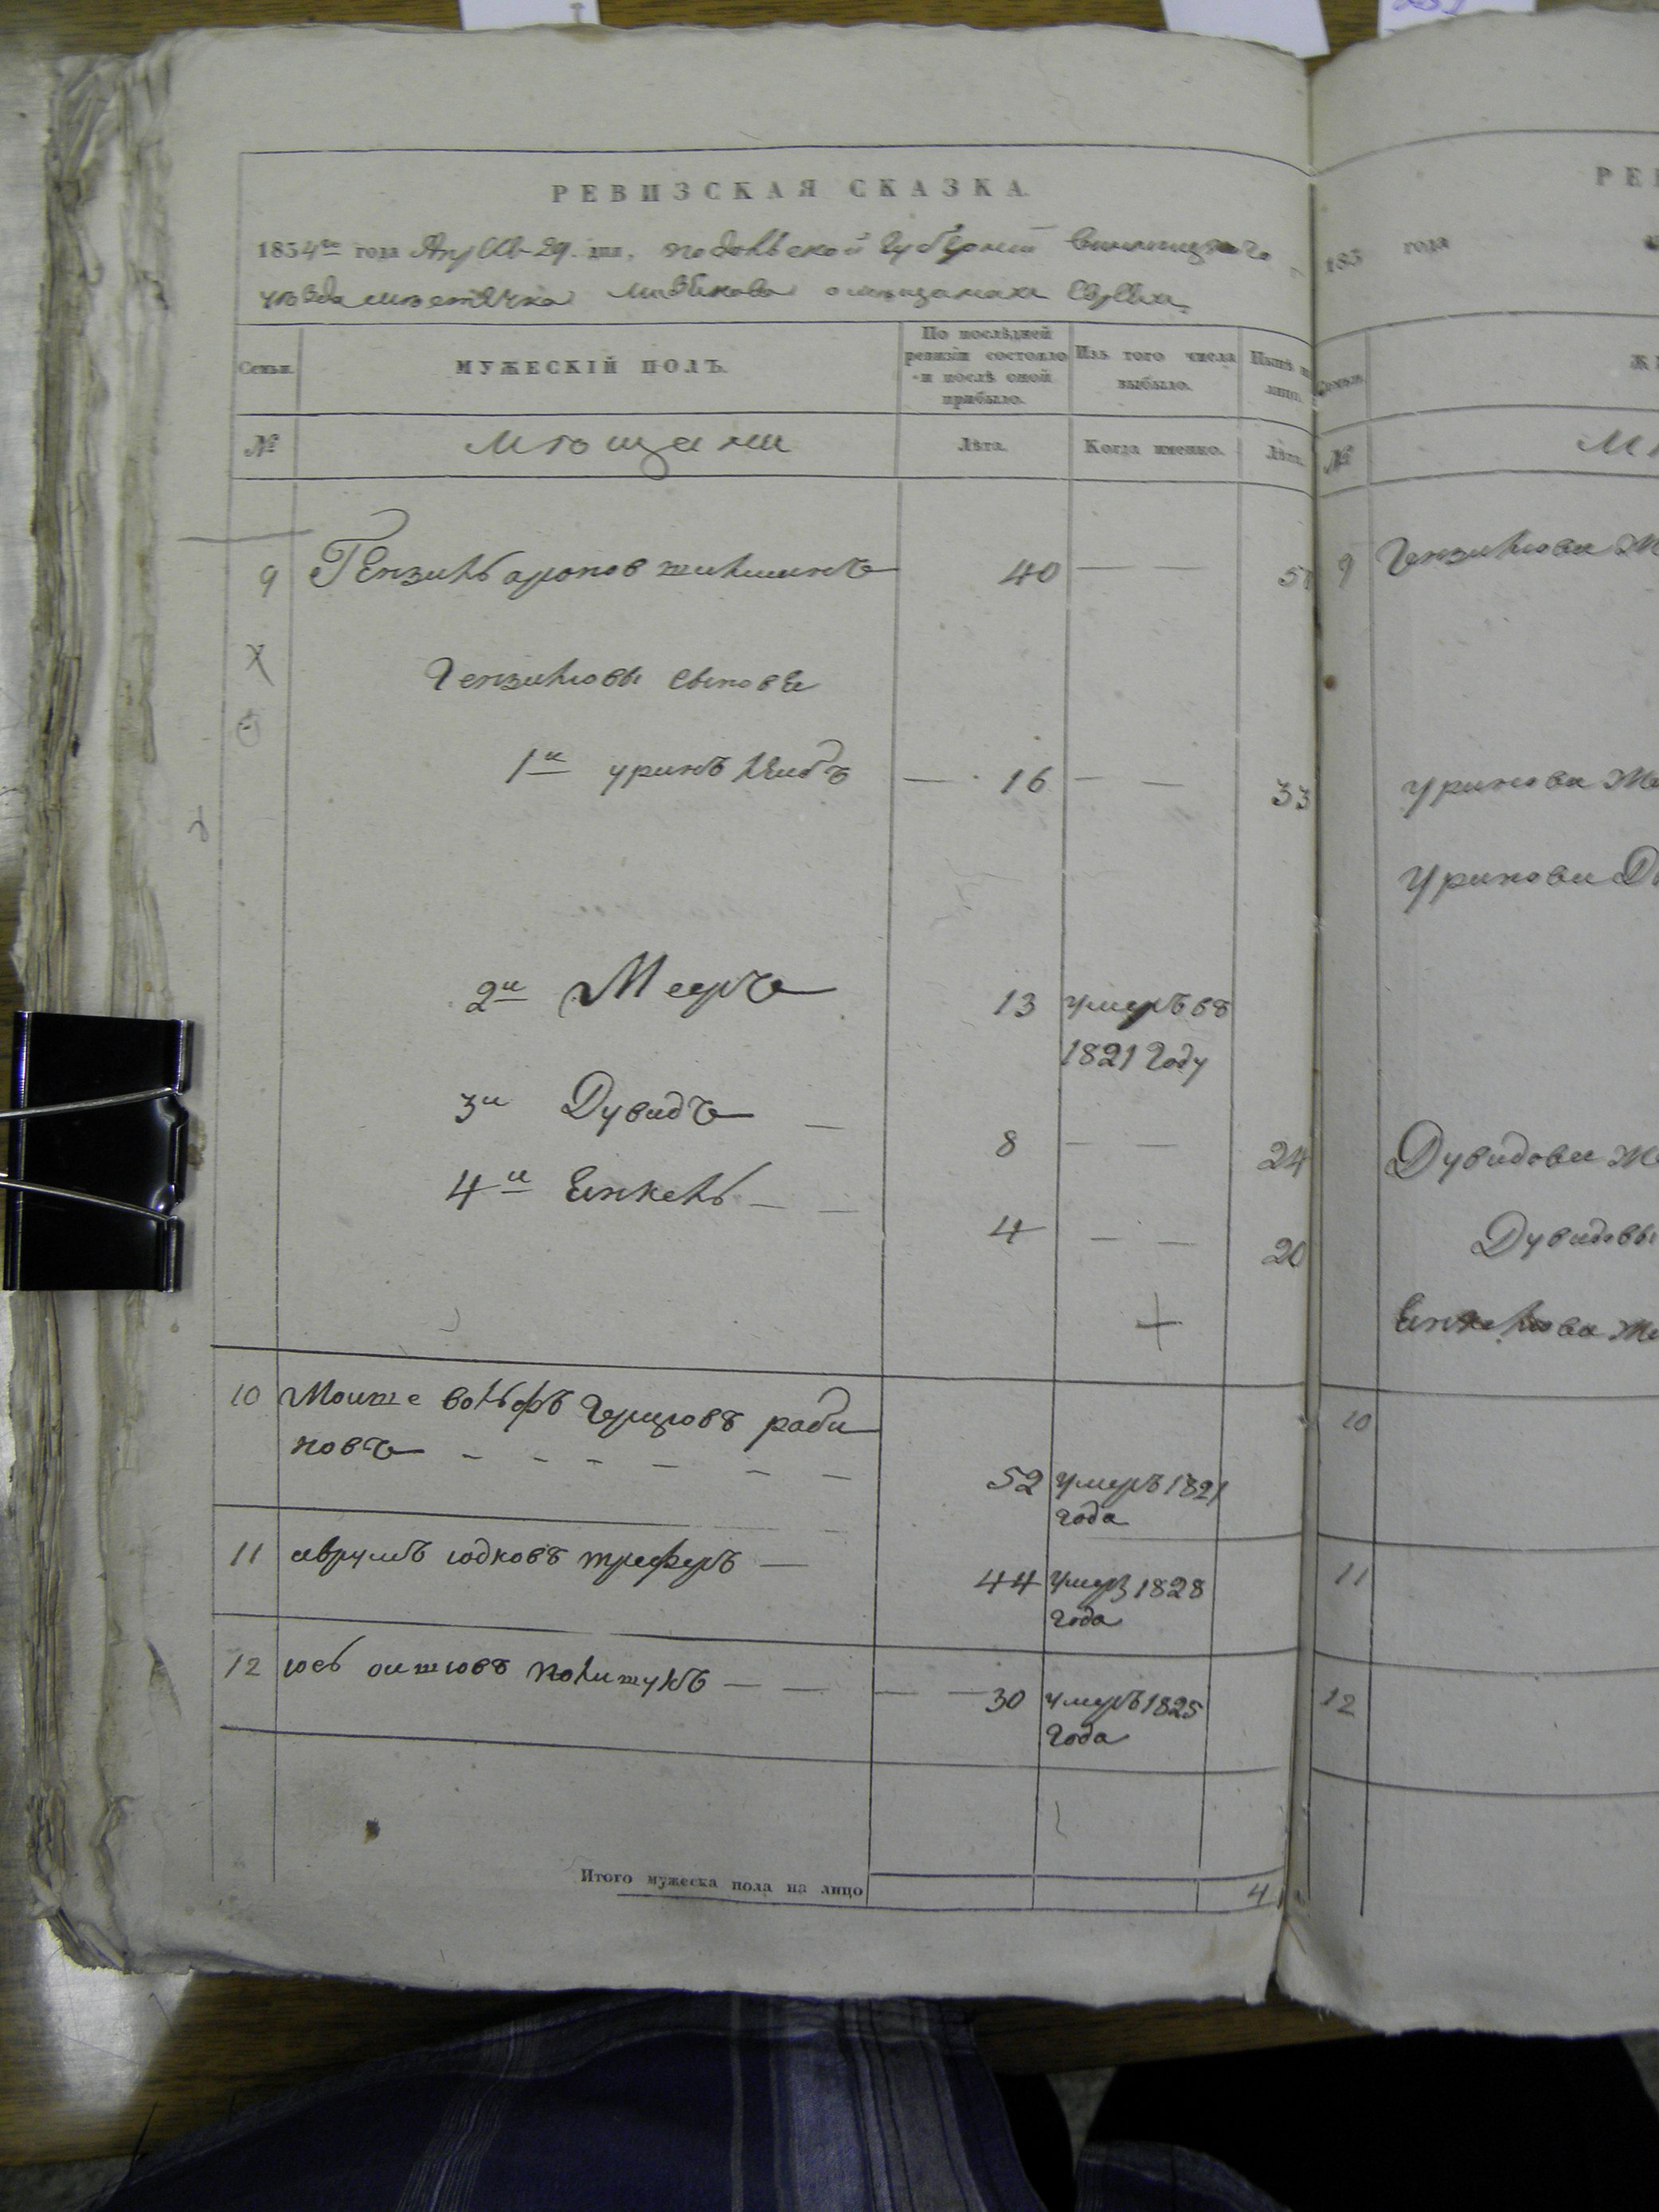 РЕВИЗСКАЯ СКАЗКА
1834го года Апреля 29. дня, подольской Губернии винницкого
уезда местечка о мещанахъ Евреяхъ
Семьи.
МУЖЕСКІЙ ПОЛЪ.
По послѣдней ревизіи состояло и послѣ оной прибыло.
Изъ того числа выбыло.
Нынѣ на лицо.
№
Мѣщани
Лѣта.
Когда именно.
Лѣта.
9 Гензиль ароновъ 40 — — 5
Гензилювы сынове
1й уринъ Лейбъ — 16 — — 33
2й Мееръ 13 умеръ въ
1821 Году
3й Дувидъ — 8 — — 24
4й Енкель — — 4 — — 20
10 Моише вольфъ Герцювъ раби
новъ — — — — — — 52 умеръ 1821
года
11 аврумъ юдковъ треферъ — 44 умеръ 1828
года
12 юсь ошіовъ полищукъ — — — — 30 умеръ 1825
года
Итого мужеска пола на лицо 4
РЕ
183 года
Семьи.
Ж
№
М
9 Гензилюва Ж
Уринова Же
Уринова Д
Дувидова Же
Дувидовы
Енкелюва Же
10
11
12